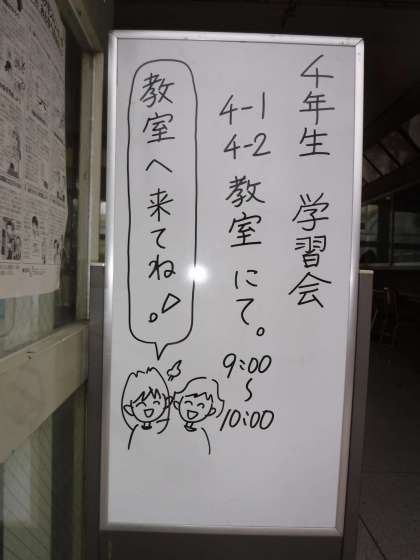 4年生 学習会
4-1
4-2 教室にて。
9:00
〜
10:00
教室へ来てね。